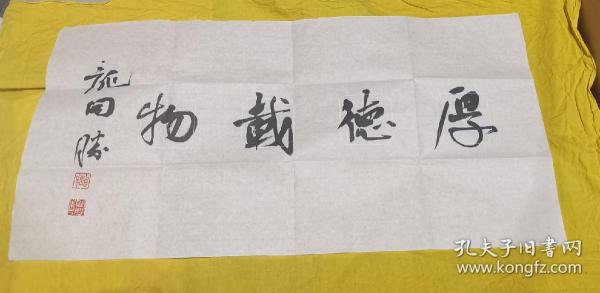 厚德載物
龍田勝
孔夫子旧书网
www.kongfz.com